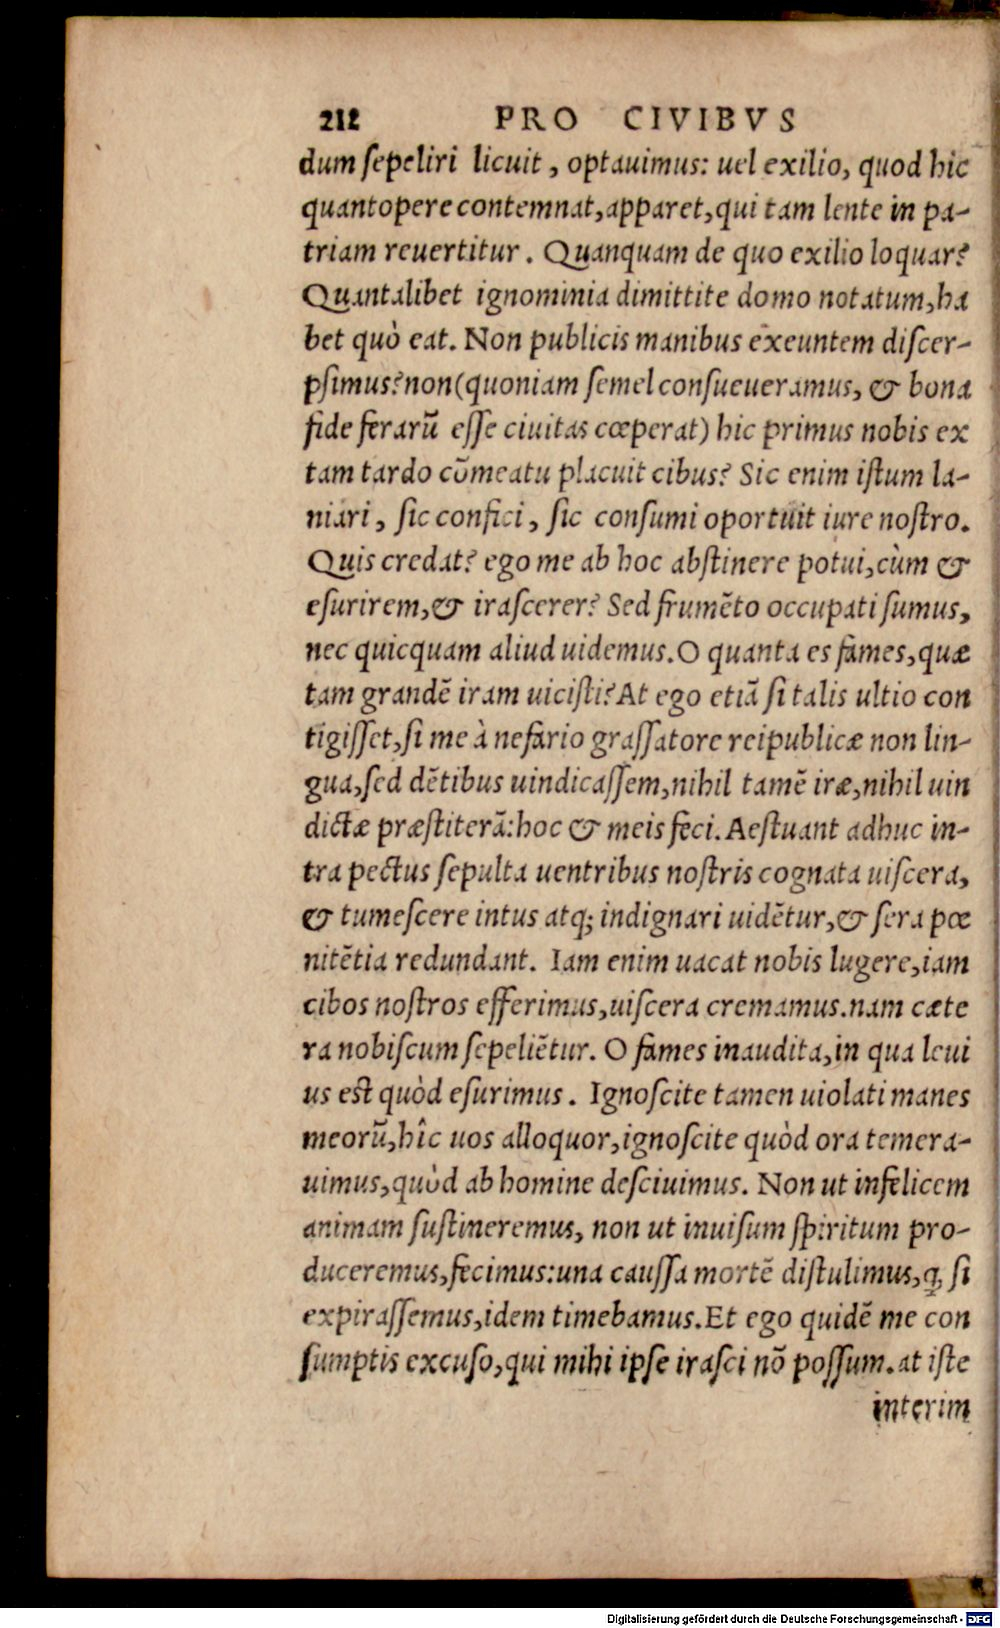 212 PRO CIVIBVS
dum ſepeliri licuit, optauimus: uel exilio, quod hic
quantopere contemnat, apparet, qui tam lente in pa-
triam reuertitur. Quanquam de quo exilio loquar?
Quantalibet ignominia dimittite domo notatum, ha
bet quò eat. Non publicis manibus exeuntem diſcer-
pſimus? non (quoniam ſemel conſueueramus, & bona
fide ferarū eſſe ciuitas cœperat) hic primus nobis ex
tam tardo cōmeatu placuit cibus? Sic enim iſtum la-
niari, ſic confici, ſic conſumi oportuit iure noſtro.
Quis credat? ego me ab hoc abſtinere potui, cùm &
eſurirem, & iraſcerer? Sed frumēto occupati ſumus,
nec quicquam aliud uidemus. O quanta es fames, quæ
tam grandē iram uiciſti? At ego etiā ſi talis ultio con
tigiſſet, ſi me à nefario graſſatore reipublicæ non lin-
gua, ſed dētibus uindicaſſem, nihil tamē iræ, nihil uin
dictæ præſtiterā: hoc & meis feci. Aeſtuant adhuc in-
tra pectus ſepulta uentribus noſtris cognata uiſcera,
& tumeſcere intus atq; indignari uidētur, & ſera pœ
nitētia redundant. Iam enim uacat nobis lugere, iam
cibos noſtros efferimus, uiſcera cremamus. nam cæte
ra nobiſcum ſepeliētur. O fames inaudita, in qua leui
us eſt quòd eſurimus. Ignoſcite tamen uiolati manes
meorū, hîc uos alloquor, ignoſcite quòd ora temera-
uimus, quòd ab homine deſciuimus. Non ut infelicem
animam ſuſtineremus, non ut inuiſum ſpiritum pro-
duceremus, fecimus: una cauſſa mortē diſtulimus, ꝗ ſi
expiraſſemus, idem timebamus. Et ego quidē me con
ſumptis excuſo, qui mihi ipſe iraſci nō poſſum. at iſte
interim
Digitalisierung gefördert durch die Deutsche Forschungsgemeinschaft - DFG